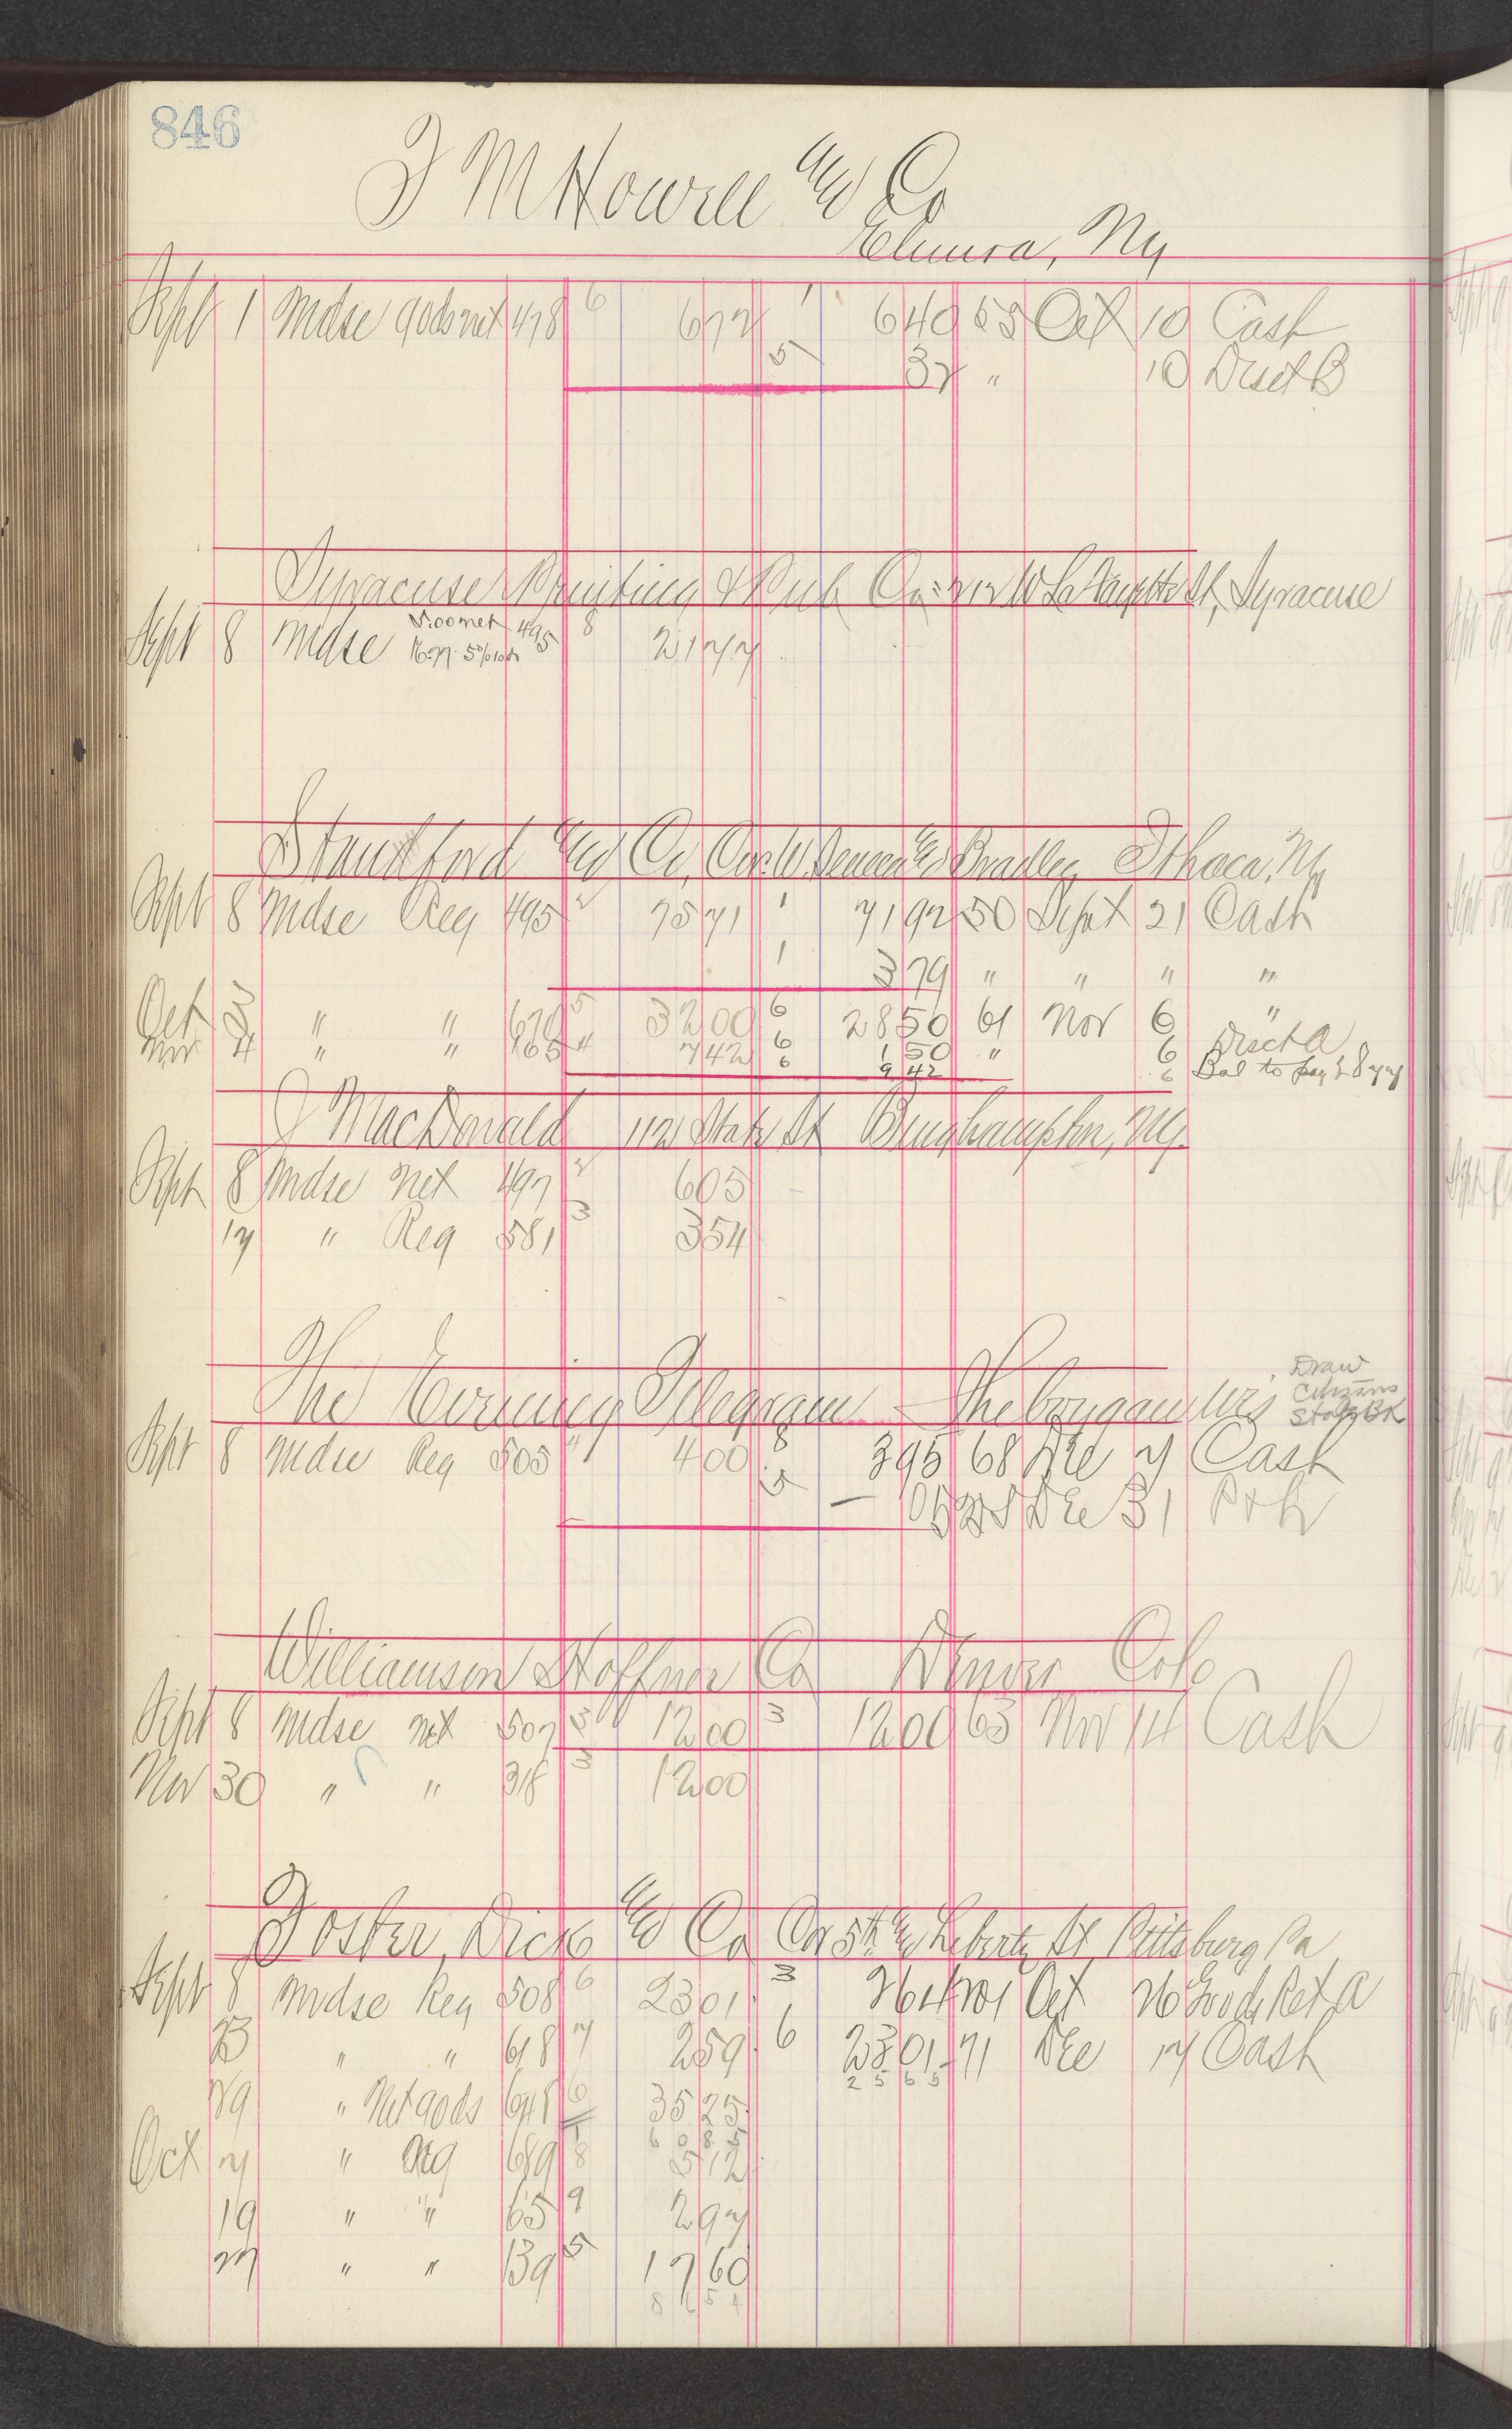 846
J M Howell and Co
Elmira, Ny
Sept 1 Mdse 90ds net 478 6 672 1 640 65 Oct 10 Cash
5 32 " 10 Disct B
Syracuse Printing & Pub Co Syracuse
Sept 8 Mdse 495 8 2177
Standford and Co, Cor. W. and Bradley Ithaca, Ny
Sept 8 Mdse Reg 495 2 7571 1 7192 50 Sept 21 Cash
1 379 " " " "
Oct 3 " " 670 5 3200 6 2850 61 Nov 6 "
Nov 4 " " 165 4 742 6 150 " 6 Disct A
6 942 6 Bal to pay
J MacDonald 112 State St Binghampton, Ny.
Sept 8 Mdse net 497 2 605
17 " Reg 581 3 354
The Evening Telegram Sheboygan Wis
Draw
Citizens
State BK
Sept 8 Mdse Reg 505 4 400 8 395 68 Dec 7 Cash
5 Dec 31
Williamson Haffner Co Denver Colo
Sept 8 Mdse net 507 3 1200 3 1200 63 Nov 14 Cash
Nov 30 " " 318 3 1200
Foster, Dick and Co Cor 5th and Liberty St Pittsburg Pa
Sept 8 Mdse Reg 508 6 2301 3 264 Oct 26 Goods Ret A
" " 618 7 259 6 2301 71 Dec 17 Cash
2565
29 " Net 90ds 648 6 3525
6085
Oct 7 " Reg 689 8 512
19 " " 65 9 297
27 " " 139 5 1760